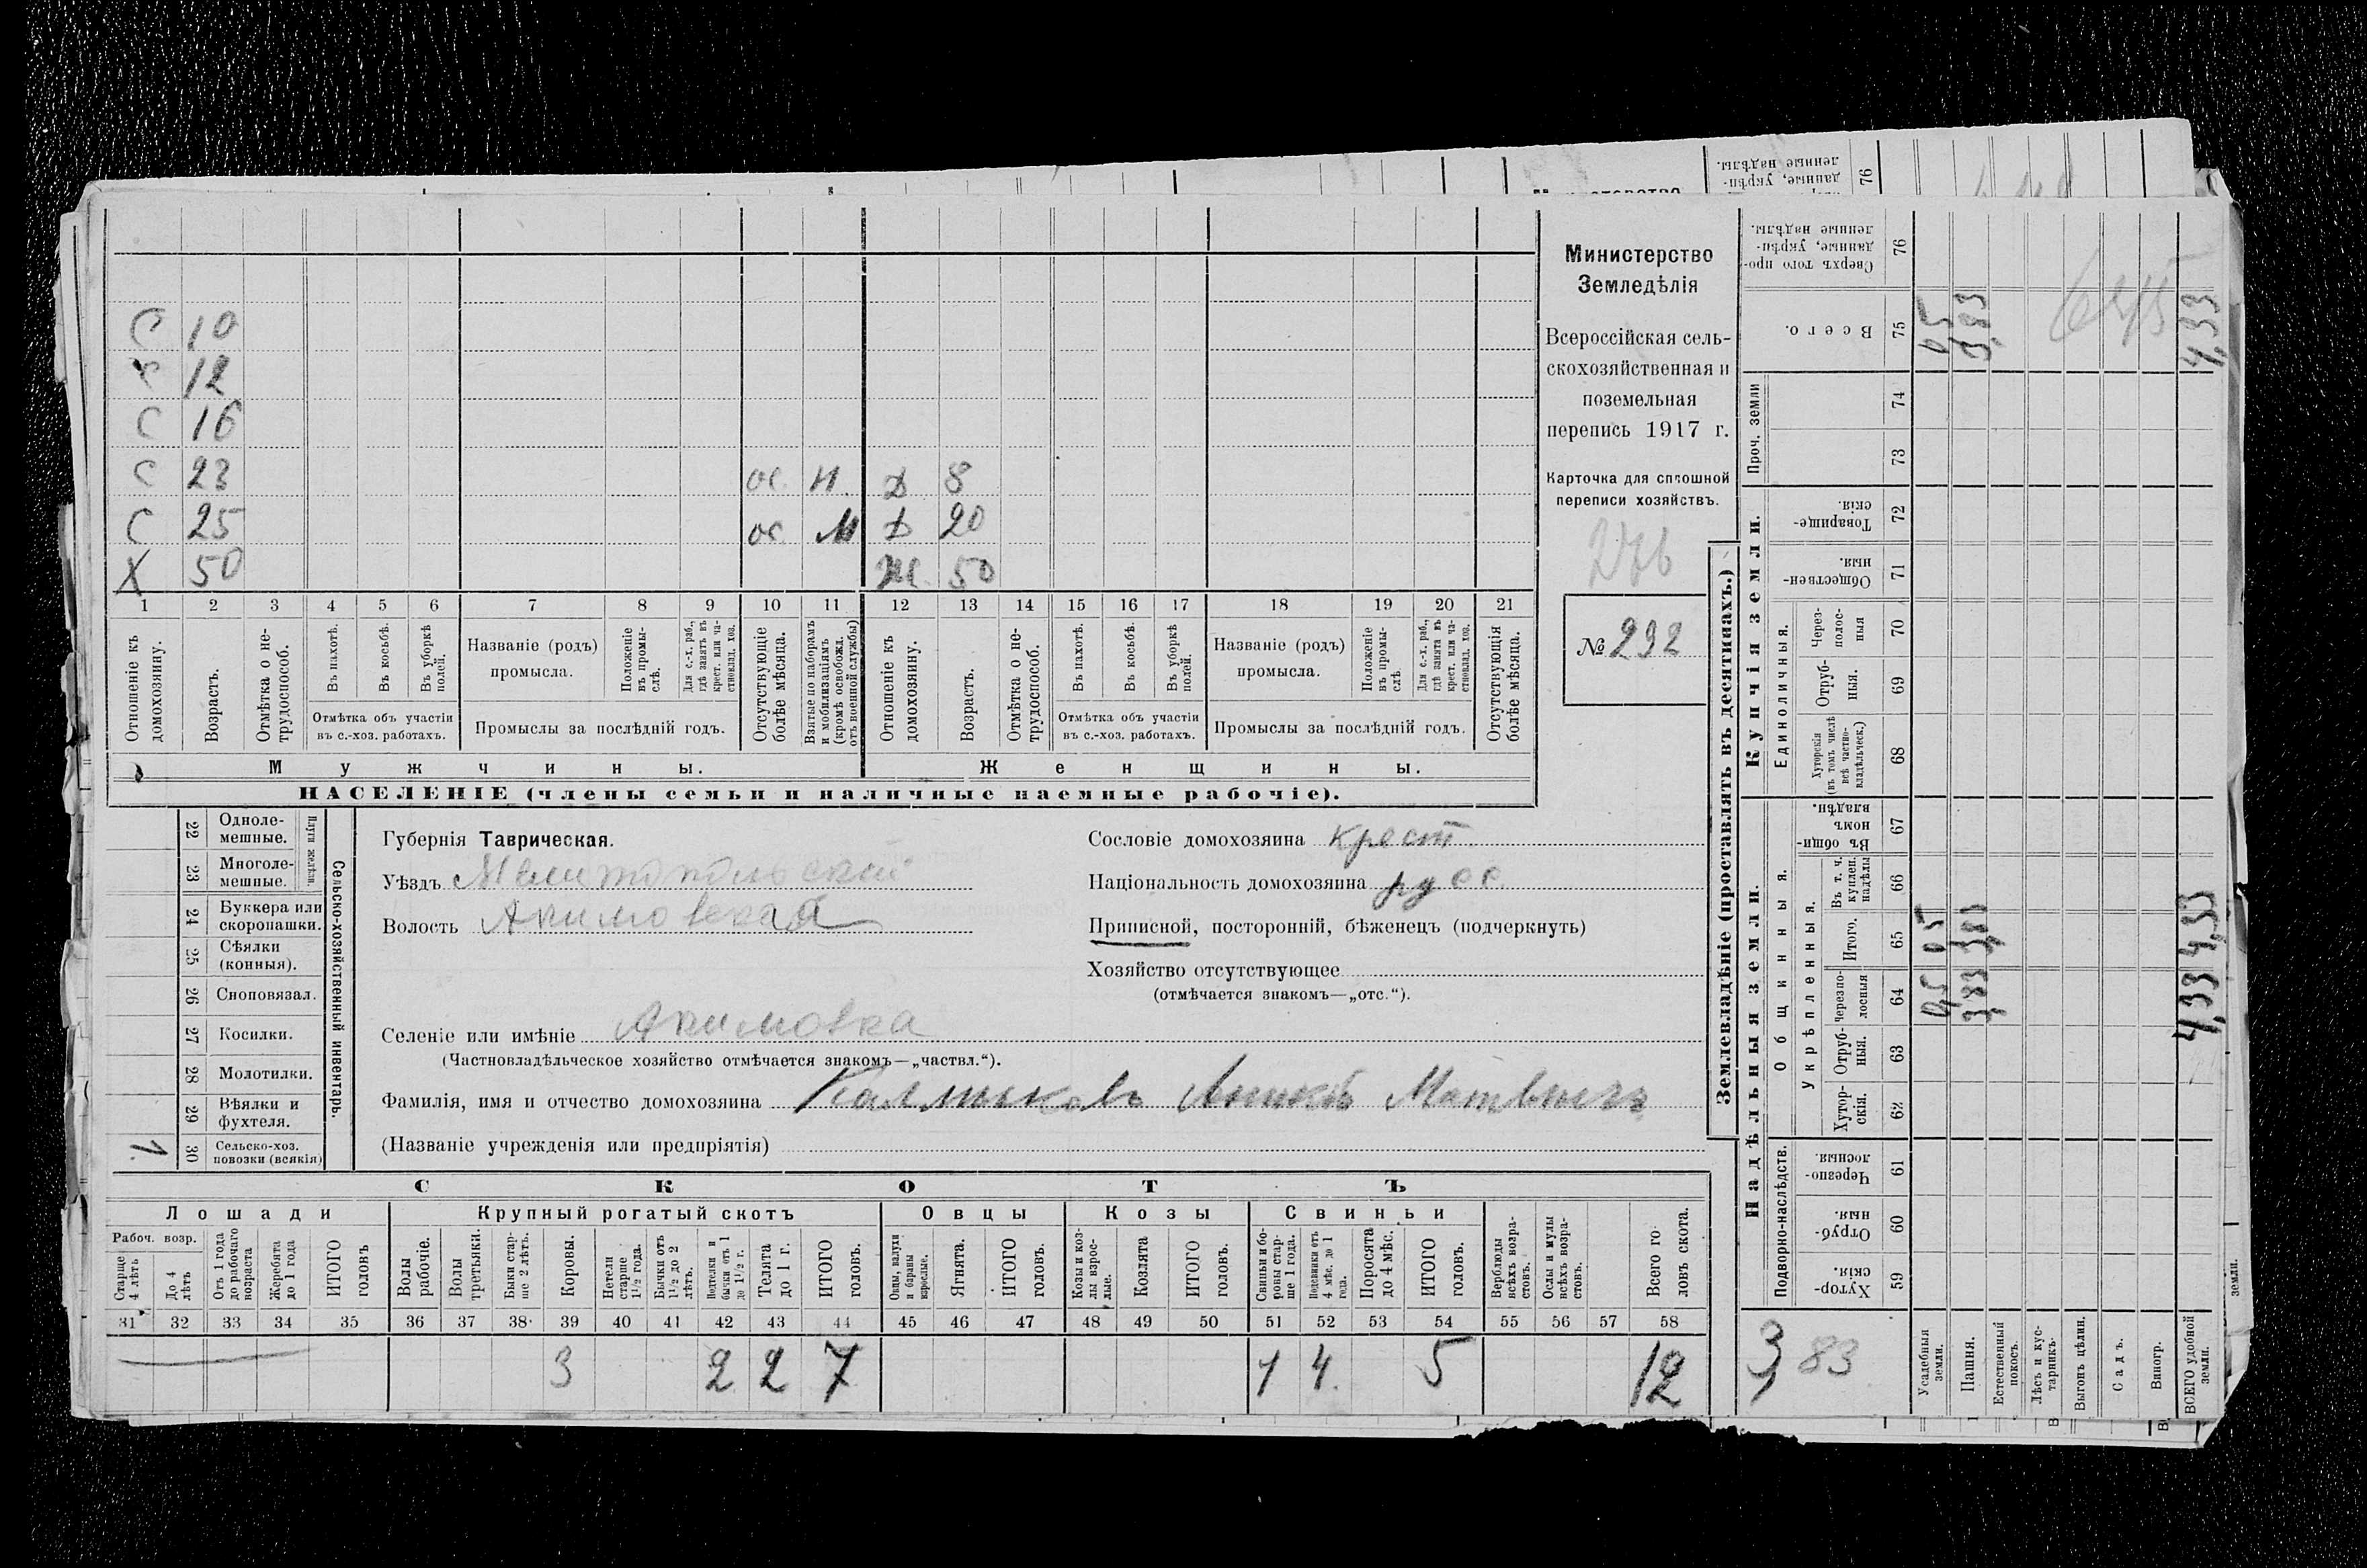 С 10
С 12
С 16
С 23 ос. Н. Д 8
С 25 ос. М Д 20
Х 50 Ж. 50
1 2 3 4 5 6 7 8 9 10 11 12 13 14 15 16 17 18 19 20 21
Отношеніе къ домохозяину.
Возрастъ.
Отмѣтка о не-трудоспособ.
Въ пахотѣ.
Въ косьбѣ.
Въ уборкѣ полей.
Отмѣтка объ участіи
въ с.-хоз. работахъ.
Названіе (родъ)
промысла.
Положеніе въ промы-слѣ.
Для с.-х. раб., гдѣ занятъ въ крест. или ча-стновлад. хоз.
Промыслы за послѣдній годъ.
Отсутствующіе болѣе мѣсяца.
Взятые по наборамъ и мобилизаціямъ (кромѣ освобожд. отъ военной службы)
Отношеніе къ домохозяину.
Возрастъ.
Отмѣтка о не-трудоспособ.
Въ пахотѣ.
Въ косьбѣ.
Въ уборкѣ полей.
Отмѣтка объ участіи
въ с.-хоз. работахъ.
Названіе (родъ)
промысла.
Положеніе въ промы-слѣ
Для с.-х. раб., гдѣ занята въ крест. или ча-стновлад. хоз.
Промыслы за послѣдній годъ.
Отсутствующія болѣе мѣсяца.
Мужчины.
Женщины.
НАСЕЛЕНІЕ (члены семьи и наличные наемные рабочіе).
Министерство
Земледѣлія
Всероссійская сель-
скохозяйственная и
поземельная
перепись 1917 г.
Карточка для сплошной
переписи хозяйствъ.
276
№ 292
22 Одноле-мешные.
23 Многоле-мешные.
Плуги желѣзн.
24 Буккера или скоропашки.
25 Сѣялки (конныя).
26 Сноповязал.
27 Косилки.
28 Молотилки.
29 Вѣялки и фухтеля.
30 Сельско-хоз. повозки (всякія)
1
Сельско-хозяйственный инвентарь.
Губернія Таврическая.
Уѣздъ Мелитопольскій
Волость Акимовская
Селеніе или имѣніе Акимовка
(Частновладѣльческое хозяйство отмѣчается знакомъ—„частвл.“).
Фамилія, имя и отчество домохозяина Калмыковъ Матвѣичъ
(Названіе учрежденія или предпріятія)
Сословіе домохозяина крест.
Національность домохозяина русс.
Приписной, посторонній, бѣженецъ (подчеркнуть)
Хозяйство отсутствующее
(отмѣчается знакомъ—„отс.“).
СКОТЪ
Лошади
Крупный рогатый скотъ
Овцы
Козы
Свиньи
Рабоч. возр.
Старше 4 лѣтъ
До 4 лѣтъ
Отъ 1 года до рабочаго возраста
Жеребята до 1 года
ИТОГО головъ
Волы рабочіе.
Волы третьяки.
Быки стар-ше 2 лѣтъ.
Коровы.
Нетели старше 1½ года.
Бычки отъ 1½ до 2 лѣтъ.
Нетелки и бычки отъ 1 до 1½ г.
Телята до 1 г.
ИТОГО головъ.
Овцы, валухи и бараны взрослые.
Ягнята.
ИТОГО головъ.
Козы и коз-лы взрос-лые.
Козлята
ИТОГО головъ.
Свиньи и бо-ровы стар-ше 1 года.
Подсвинки отъ 4 мѣс. до 1 года.
Поросята до 4 мѣс.
ИТОГО головъ.
Верблюды всѣхъ возра-стовъ.
Ослы и мулы всѣхъ возра-стовъ.
Всего го-ловъ скота.
31 32 33 34 35 36 37 38 39 40 41 42 43 44 45 46 47 48 49 50 51 52 53 54 55 56 57 58
3 2 2 7 1 4. 5 12
Землевладѣніе (проставлять въ десятинахъ.)
Надѣльныя земли.
Купчія земли.
Проч. земли
Подворно-наслѣдств.
Общинныя.
Укрѣпленныя.
Единоличныя.
Хутор-скія. 59
Отруб-ныя. 60
Черезпо-лосныя. 61
Хутор-скія. 62
Отруб-ныя. 63
Черезпо-лосныя 64
Итого. 65
Въ т. ч. куплен. надѣлы 66
Въ общи-номъ владѣн. 67
Хуторскія (въ томъ числѣ всѣ частно-владѣльческ.) 68
Отруб-ныя. 69
Через-полос-ныя 70
Обществен-ныя. 71
Товарище-скія. 72
73
74
Всего. 75
Сверхъ того про-данные, укрѣп-ленные надѣлы. 76
3,83
Усадебныя земли. 0,5 0,5 0,5
Пашня. 3,83 3,83 3,83
Естественный покосъ.
Лѣсъ и кус-тарникъ.
Выгонъ цѣлин.
Садъ.
Виногр.
ВСЕГО удобной земли. 4,33 4,33 4,33